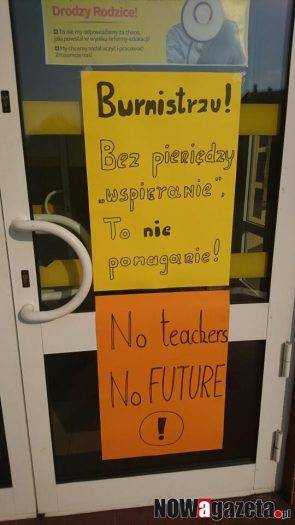 Drodzy Rodzice!
To nie my odpowiadamy za chaos,
jaki powstał w wyniku reformy edukacji!
My chcemy nadal uczyć i pracować!
Zrozumcie nas!
Burmistrzu!
Bez pieniędzy
„wspieranie",
To nie
pomaganie!
No teachers
No FUTURE
!
NOWAgazeta.pl